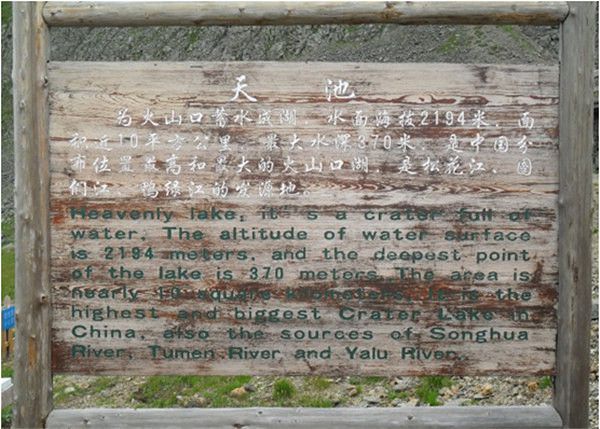 天 池
为火山口蓄水成湖，水面海拔2194米，面
积近10平方公里，最大水深370米，是中国分
布位置最高和最大的火山口湖，是松花江、图
们江、鸭绿江的发源地。
Heavenly lake, it's a crater full of
water, The altitude of water surface
is 2194 meters, and the deepest point
of the lake is 370 meters, The area is
nearly 10 square kilometers, It is the
highest and biggest Crater Lake in
China, also the sources of Songhua
River, Tumen River and Yalu River.